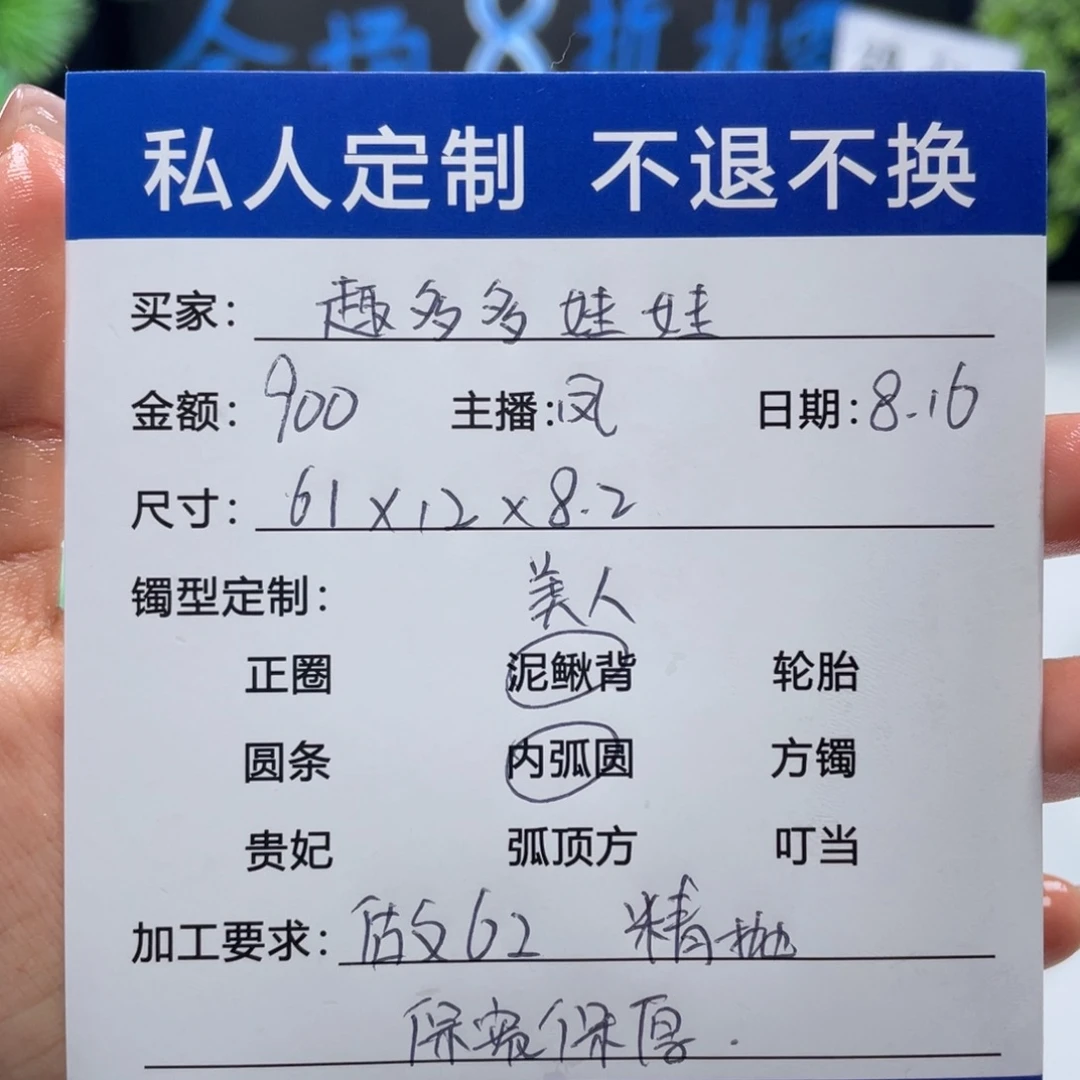 私人定制 不退不换
买家: 趣多多娃娃
金额: 900 主播: 凤 日期: 8.16
尺寸: 61x12x8.2
镯型定制: 美人
正圈 泥鳅背 轮胎
圆条 内弧圆 方镯
贵妃 弧顶方 叮当
加工要求: 做62 精抛
保宽保厚.